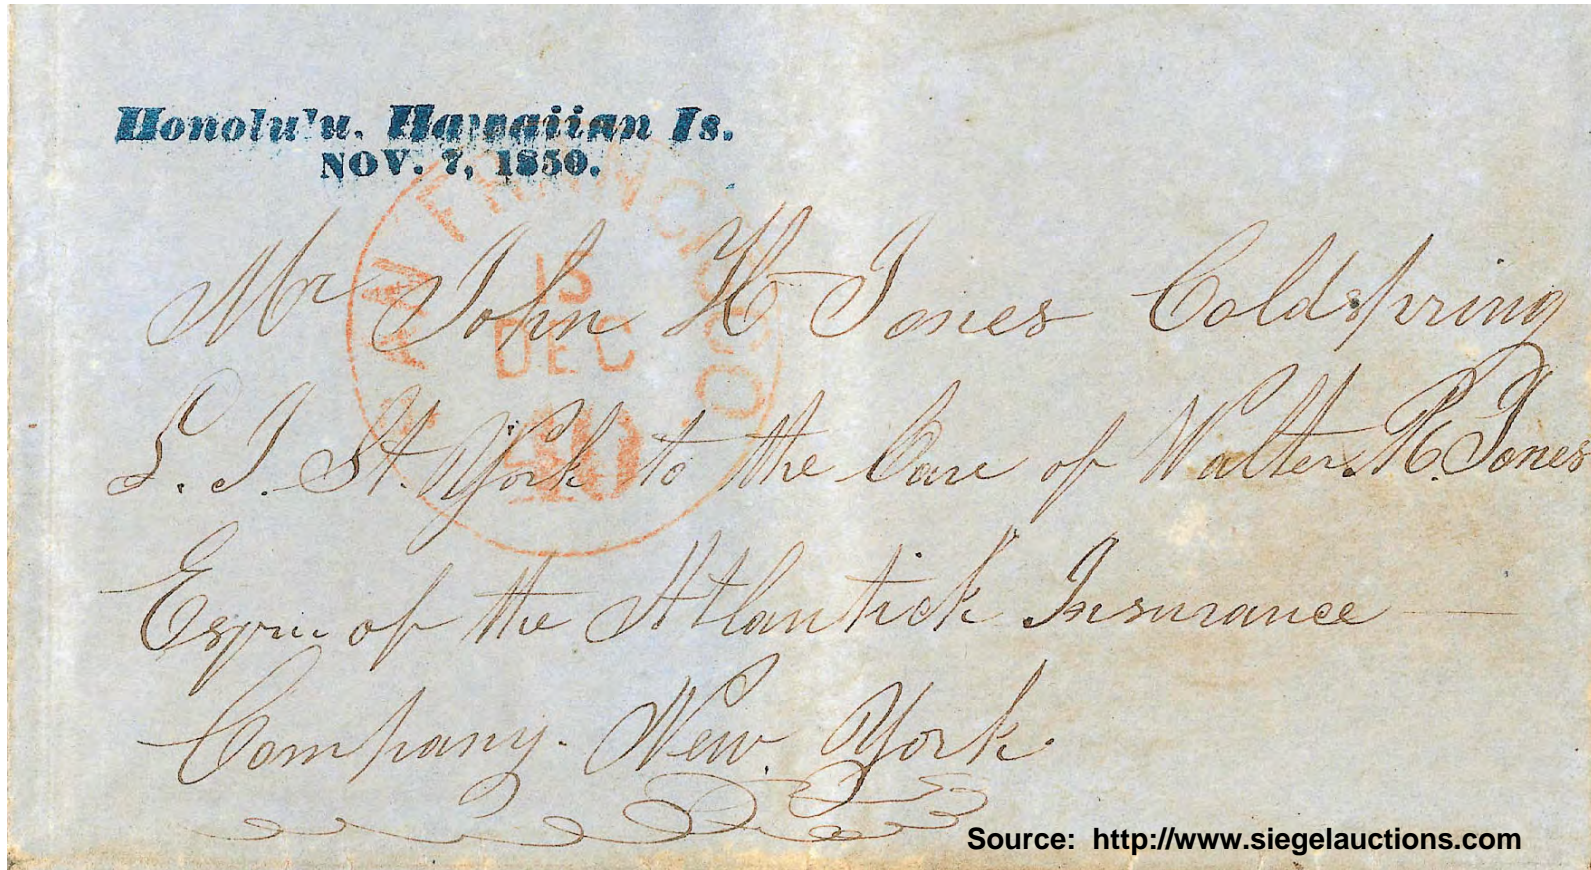 Honolu'u, Hawaiian Is.
NOV. 7, 1850.
SAN FRANCISCO
15
DEC
40
Mr John H Jones Coldspring
L. I. St. York to the Care of Walter R. Jones
Esqre of the Atlantick Insurance
Company. New York.
Source: http://www.siegelauctions.com